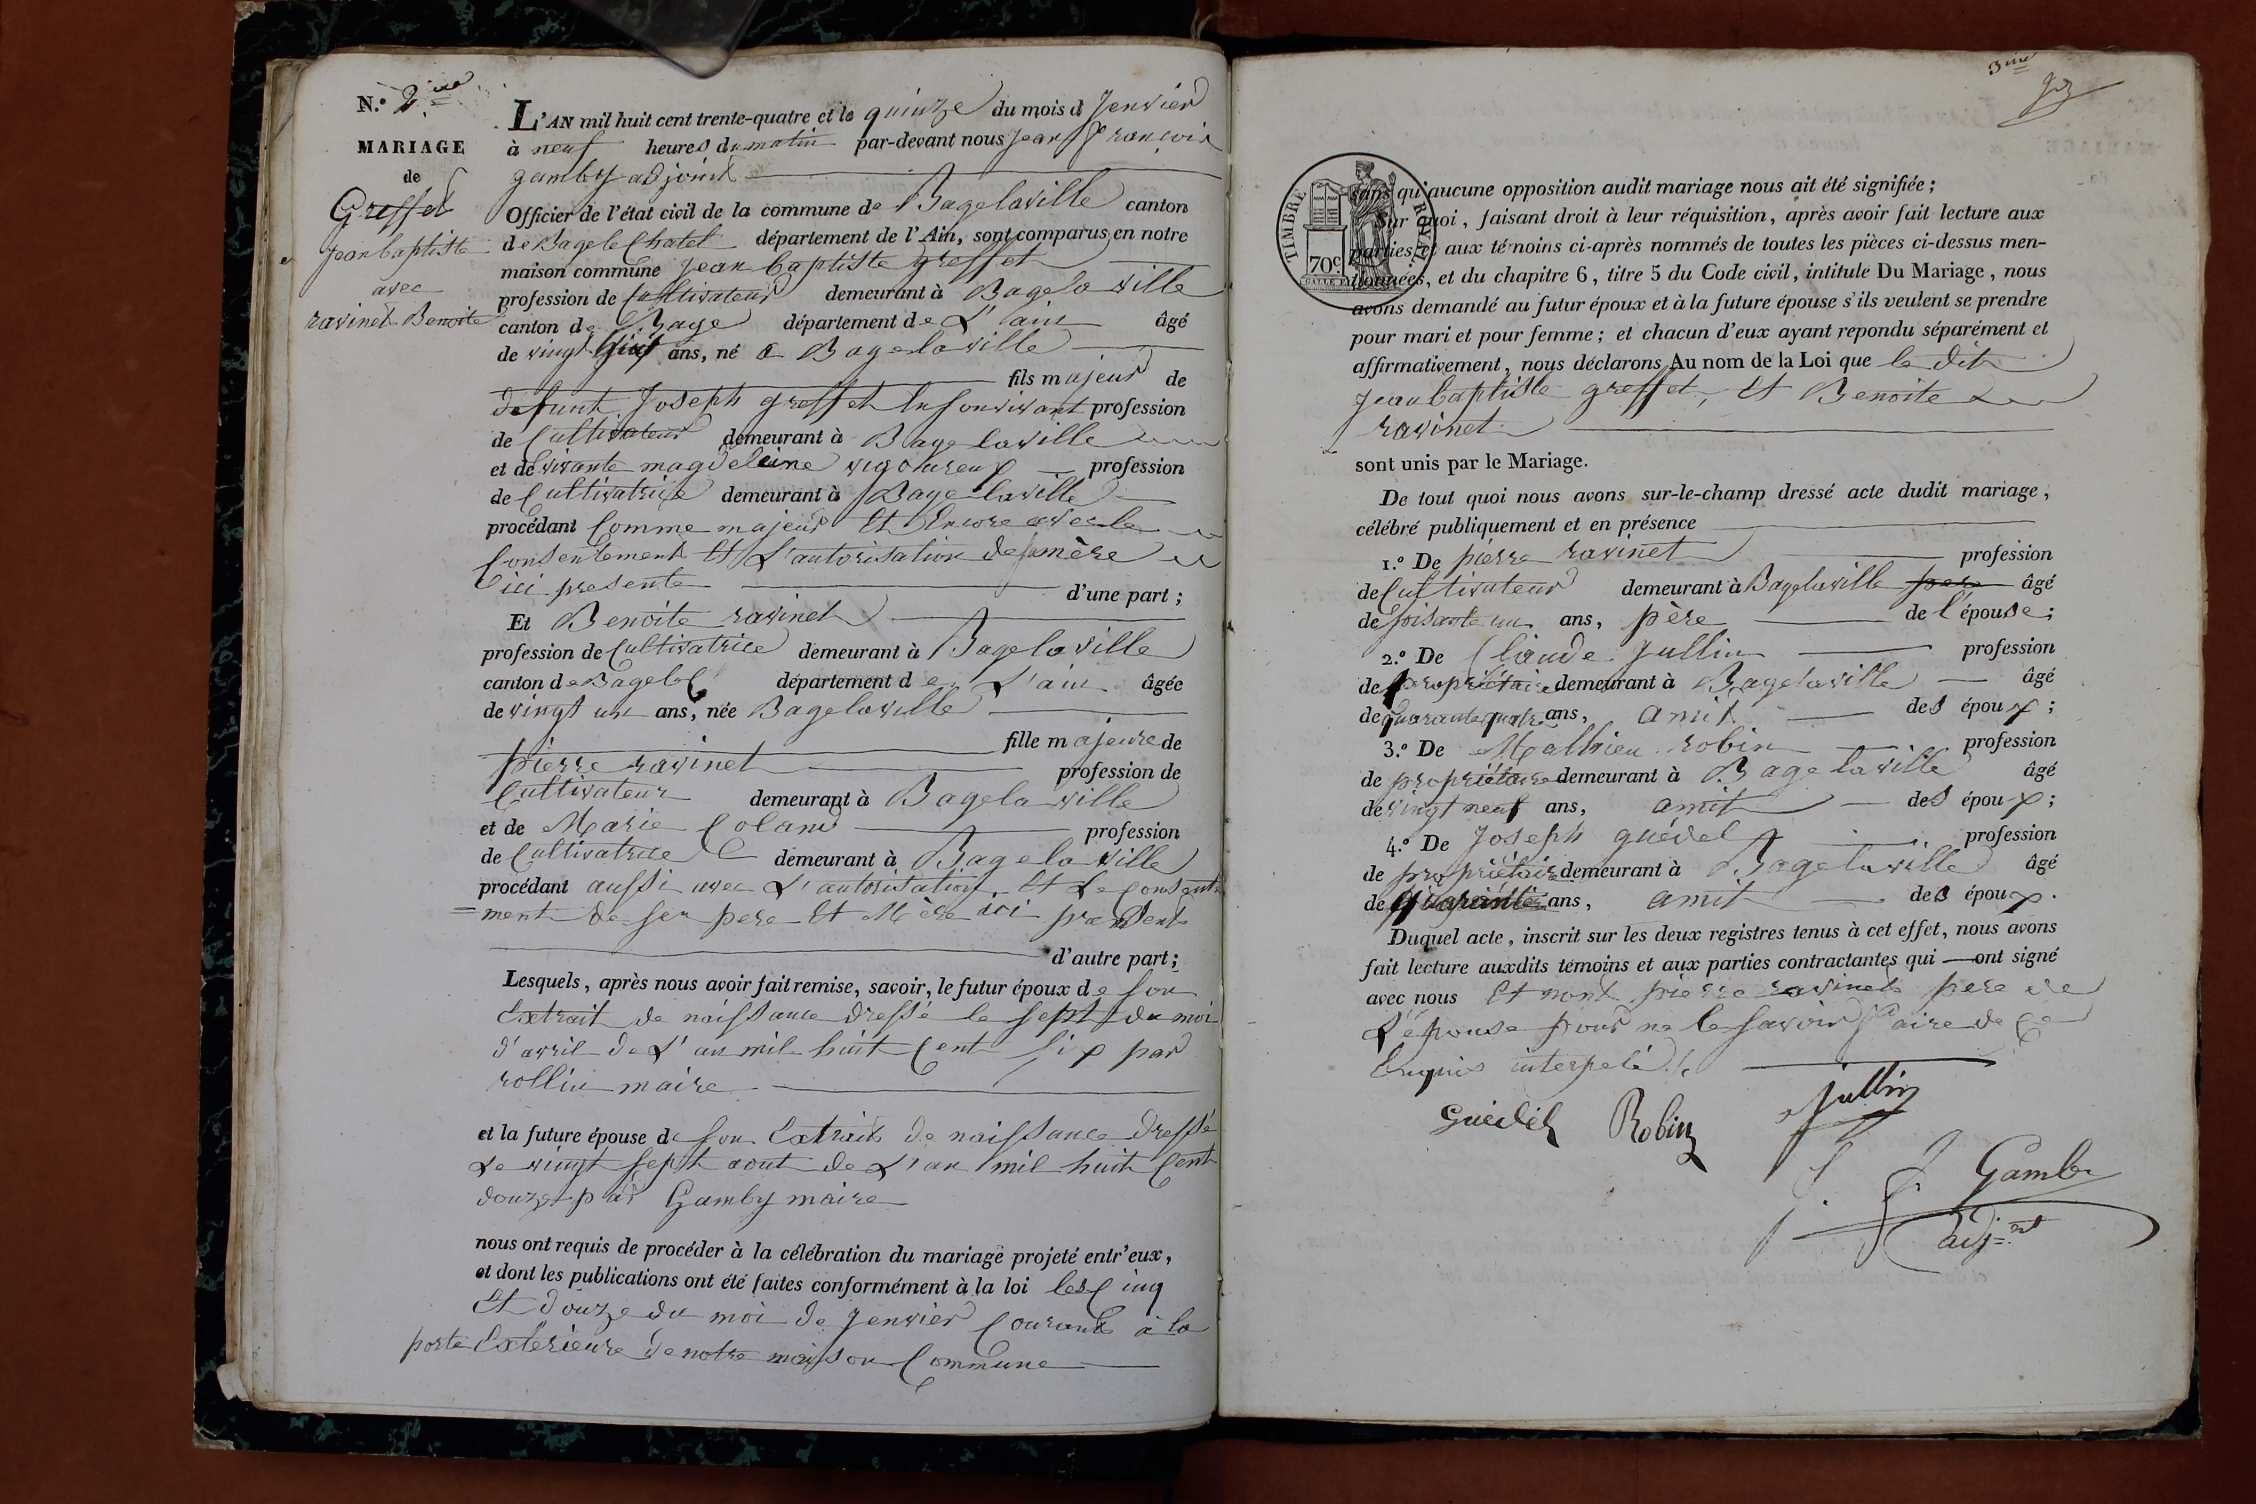 N.º 2ème
MARIAGE
de
Greffet
jean baptiste
avec
ravinet Benoite
L'AN mil huit cent trente-quatre et le quinze du mois d Jenvier
à neuf heures du matin par-devant nous Jean François
gamby adjoint
Officier de l'état civil de la commune de Bagelaville canton
de Bagele Chatel département de l'Ain, sont comparus en notre
maison commune jean baptiste greffet
profession de Cultivateur demeurant à Bagela ville
canton de Bage département de L'ain âgé
de vingt huit ans, né a Bagelaville
fils majeur de
defunt Joseph greffet profession
de Cultivateur demeurant à Bagelaville
et de vivante magdeleine vigoureux profession
de Cultivatrice demeurant à Bagelaville
procédant Comme majeur Et Encore avec le
Consentement Et L'autorisation de sa mère
ici presente d'une part ;
Et Benoite ravinet
profession de Cultivatrice demeurant à Bagelaville
canton de Bagele C département de L'ain âgée
de vingt un ans, née Bagelaville
fille majeure de
pierre ravinet profession de
Cultivateur demeurant à Bagela ville
et de Marie Coland profession
de Cultivatrice demeurant à Bagela ville
procédant aussi avec L'autorisation Et Le Consente
=ment de ser pere Et Mère ici present
d'autre part ;
Lesquels, après nous avoir fait remise, savoir, le futur époux de son
Extrait de naissance dressé le sept du moi
d'avril de L'an mil huit Cent six par
rollin maire
et la future épouse de son Extrait de naissance dressé
Le vingt sept aout de L'an mil huit Cent
douze par Gamby maire
nous ont requis de procéder à la célébration du mariage projeté entr'eux,
et dont les publications ont été faites conformément à la loi les Cinq
Et douze du moi de Jenvier Courant à la
porte Extérieure de notre maison Commune
3ème
TIMBRE ROYAL
70c
sans qu'aucune opposition audit mariage nous ait été signifiée ;
Sur quoi, faisant droit à leur réquisition, après avoir fait lecture aux
parties et aux témoins ci-après nommés de toutes les pièces ci-dessus men-
tionnées, et du chapitre 6, titre 5 du Code civil, intitulé Du Mariage, nous
avons demandé au futur époux et à la future épouse s'ils veulent se prendre
pour mari et pour femme ; et chacun d'eux ayant repondu séparément et
affirmativement, nous déclarons Au nom de la Loi que le dit
jean baptiste greffet, Et Benoite
ravinet
sont unis par le Mariage.
De tout quoi nous avons sur-le-champ dressé acte dudit mariage,
célébré publiquement et en présence
1.º De pierre ravinet profession
de Cultivateur demeurant à Bagelaville pere âgé
de soisante un ans, père de l'épouse ;
2.º De Claude Jullin profession
de propriétaire demeurant à Bagelaville âgé
de quarante quatre ans, amit des époux ;
3.º De Mathieu robin profession
de propriétaire demeurant à Bagelaville âgé
de vingt neuf ans, amit des époux ;
4.º De Joseph guédel profession
de propriétaire demeurant à Bagelaville âgé
de quarante ans, amit des époux.
Duquel acte, inscrit sur les deux registres tenus à cet effet, nous avons
fait lecture auxdits témoins et aux parties contractantes qui ont signé
avec nous Et nont pierre ravinet pere de
L'épouse pour ne le savoir faire de ce
Enquis interpelé
Guédel Robin Jullin
Gamby
adjnt